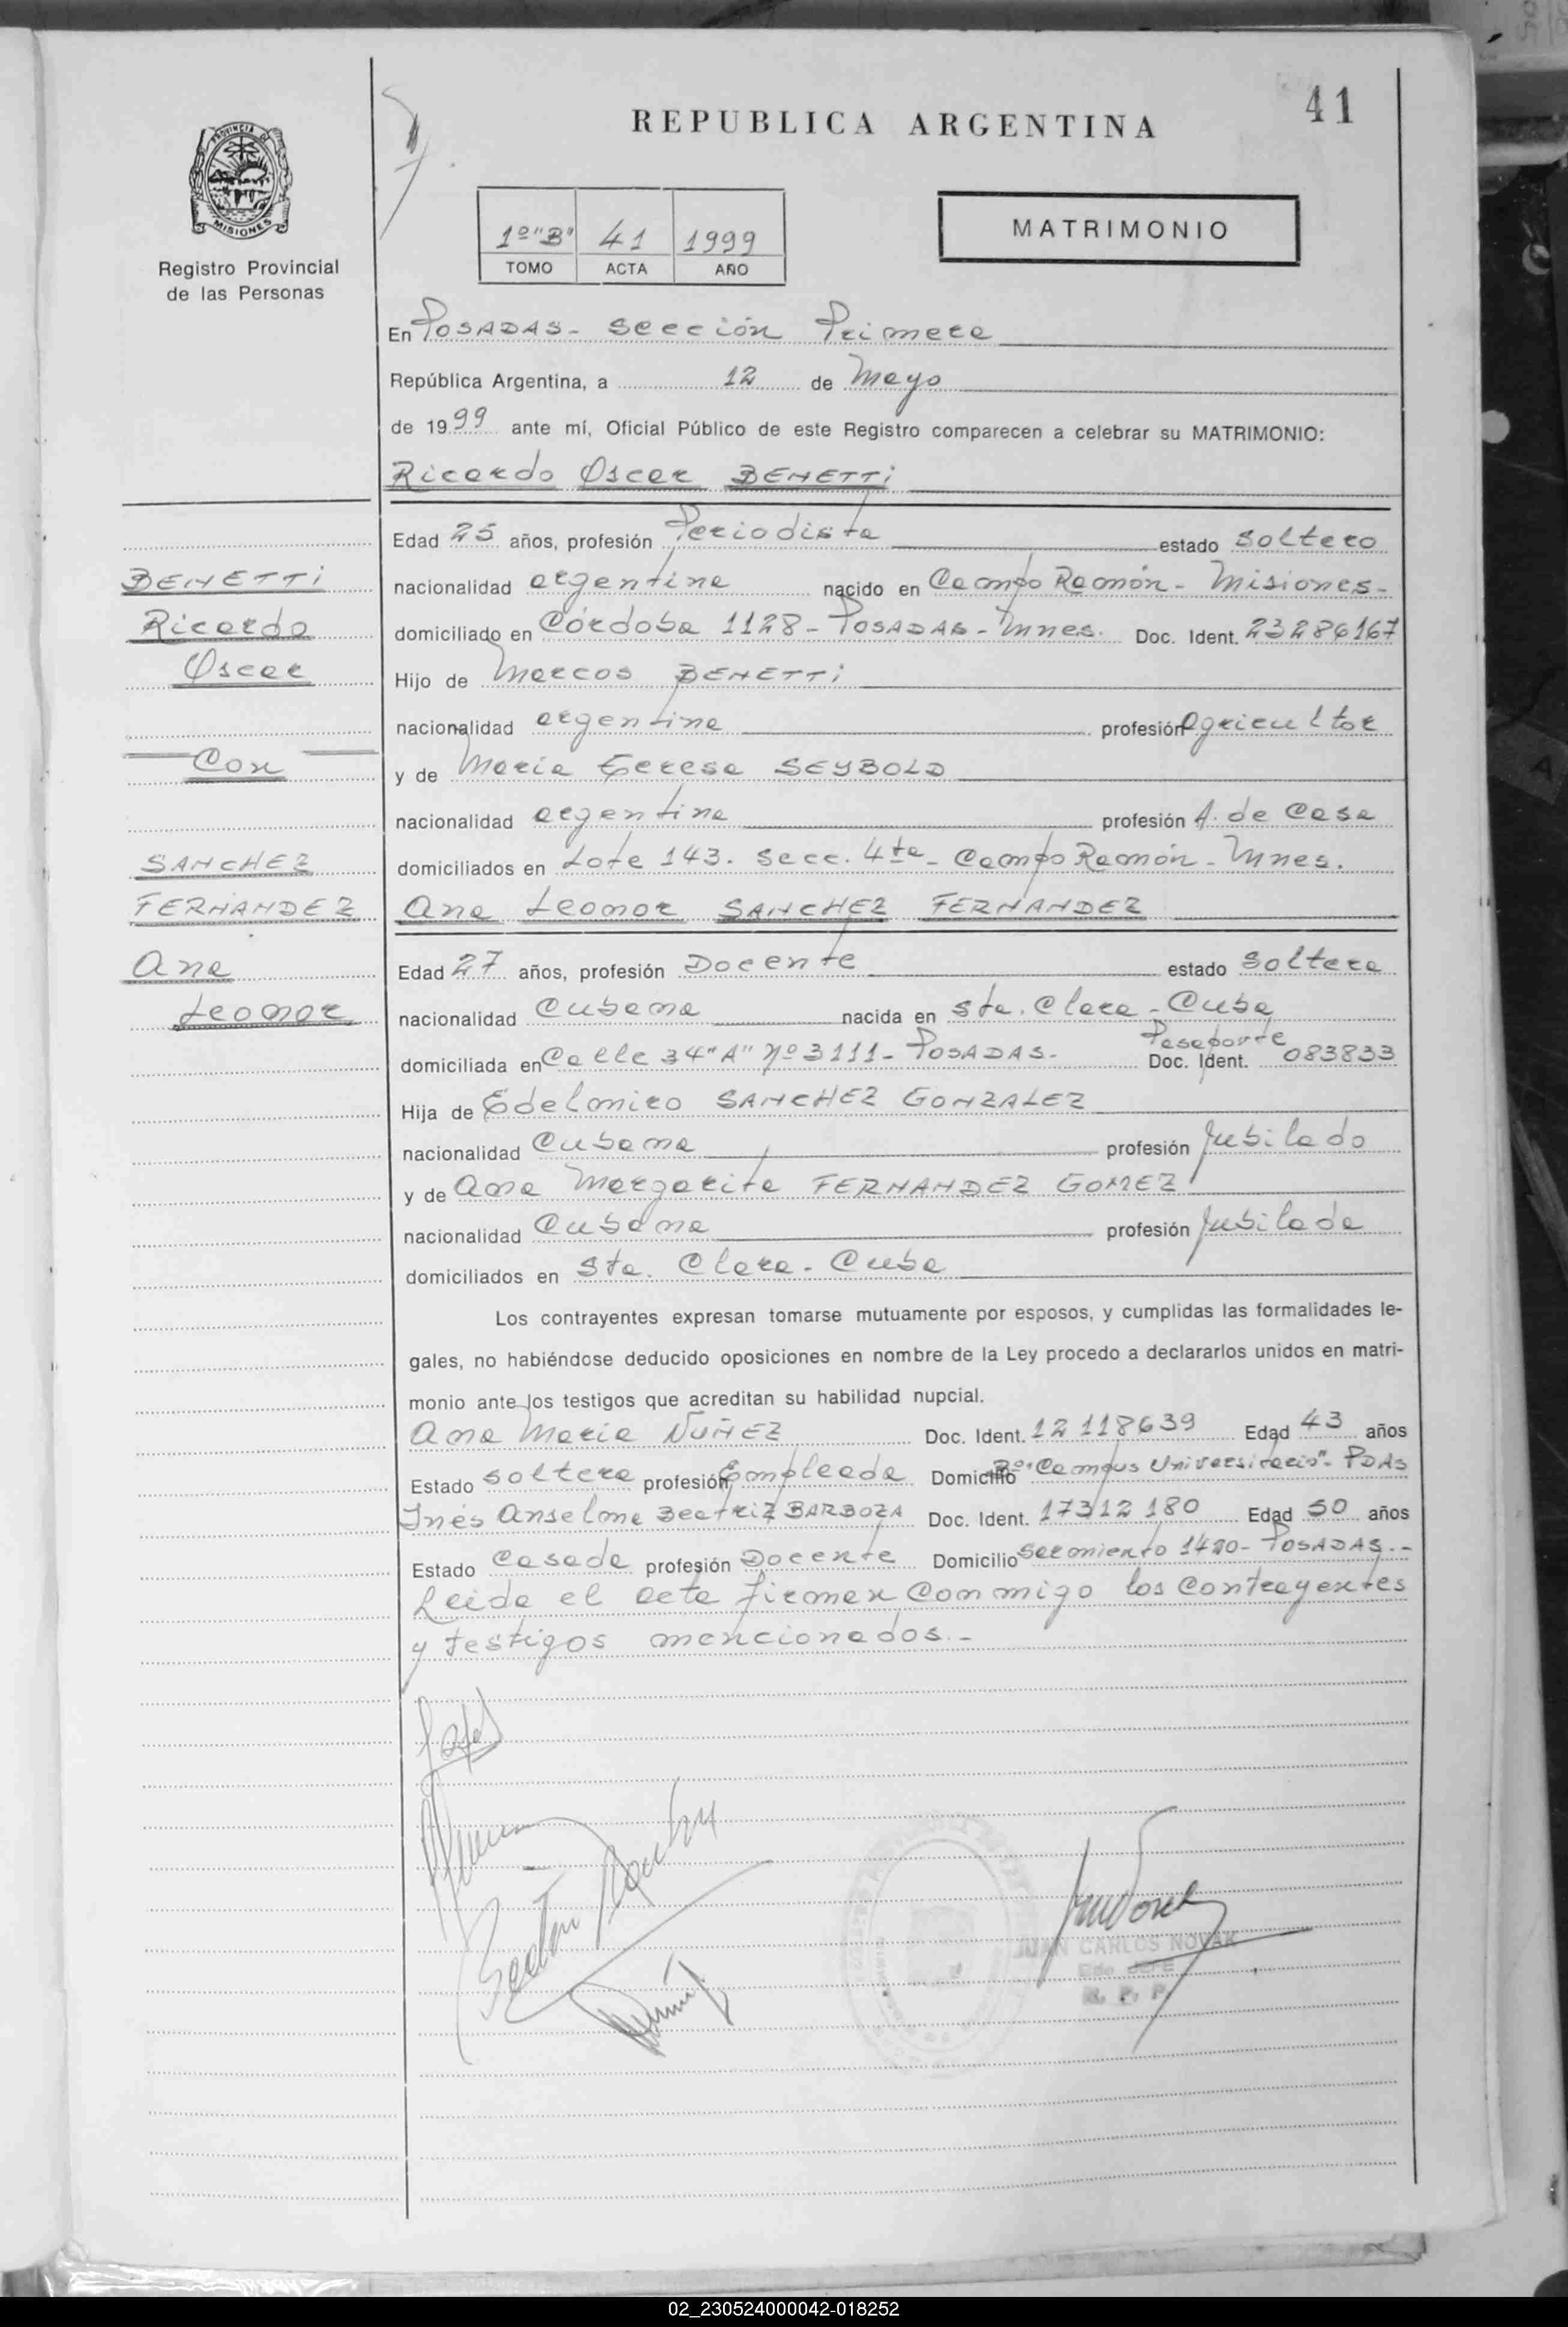 41
REPUBLICA ARGENTINA
PROVINCIA DE
MISIONES
Registro Provincial
de las Personas
1º "B" 41 1999
TOMO ACTA AÑO
MATRIMONIO
En POSADAS - Sección Primera
República Argentina, a 12 de Mayo
de 1999 ante mí, Oficial Público de este Registro comparecen a celebrar su MATRIMONIO:
Ricardo Oscar BENETTi
Edad 25 años, profesión Periodista estado Soltero
BENETTi
nacionalidad argentina nacido en Campo Ramón - Misiones -
Ricardo
domiciliado en Córdoba 1128 - POSADAS - Mnes. Doc. Ident. 23286167
Oscar
Hijo de Marcos BENETTi
nacionalidad argentina profesión agricultor
Con
y de María Teresa SEYBOLD
nacionalidad argentina profesión A. de Casa
SANCHEZ
domiciliados en Lote 143. Secc. 4ta - Campo Ramón - Mnes.
FERNANDEZ
Ana Leonor SANCHEZ FERNANDEZ
Ana
Edad 27 años, profesión Docente estado Soltera
Leonor
nacionalidad Cubana nacida en Sta. Clara - Cuba
domiciliada en Calle 34 "A" Nº 3111 - POSADAS - Pasaporte Doc. Ident. 083833
Hija de Edelmiro SANCHEZ GONZALEZ
nacionalidad Cubana profesión Jubilado
y de Ana Margarita FERNANDEZ GOMEZ
nacionalidad Cubana profesión Jubilada
domiciliados en Sta. Clara - Cuba
Los contrayentes expresan tomarse mutuamente por esposos, y cumplidas las formalidades le-
gales, no habiéndose deducido oposiciones en nombre de la Ley procedo a declararlos unidos en matri-
monio ante los testigos que acreditan su habilidad nupcial.
Ana María NUÑEZ Doc. Ident. 12118639 Edad 43 años
Estado Soltera profesión Empleada Domicilio Bº "Campus Universitario" - PDAS
Inés Anselma Beatriz BARBOZA Doc. Ident. 17312180 Edad 50 años
Estado Casada profesión Docente Domicilio Sarmiento 1480 - POSADAS. -
Leída el acta firman conmigo los contrayentes
y testigos mencionados. -
JUAN CARLOS NOVAK
JEFE
R. P. P.
02_230524000042-018252